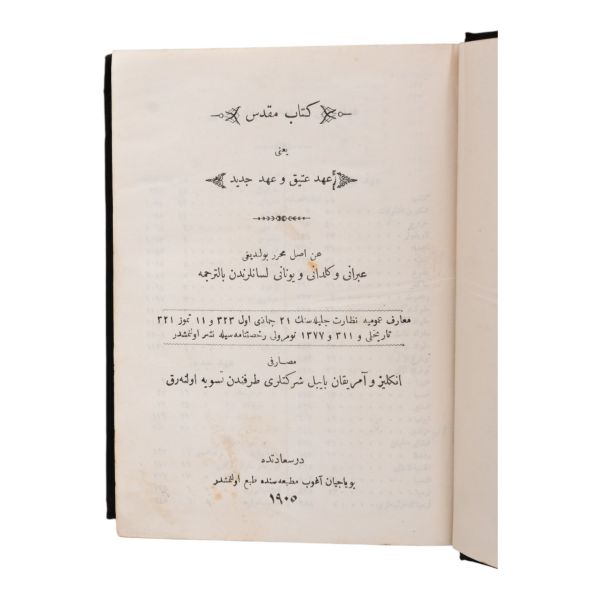 كتاب مقدس
یعنی
عهد عتیق و عهد جدید
عن اصل محرر بولندیغی
عبرانی و كلدانی و یونانی لسانلرندن بالترجمه
معارف عمومیه نظارت جلیله‌سنك ٢١ جماذی اول ٣٢٣ و ١١ تموز ٣٢١
تاریخلی و ٣١١ و ١٣٧٧ نومرولی رخصتنامه‌سیله نشر اولنمشدر
مصارفی
انكلیز و آمریقان بایبل شركتلری طرفندن تسویه اولنه‌رق
درسعادتده
بویاجیان آغوب مطبعه‌سنده طبع اولنمشدر
١٩٠٥